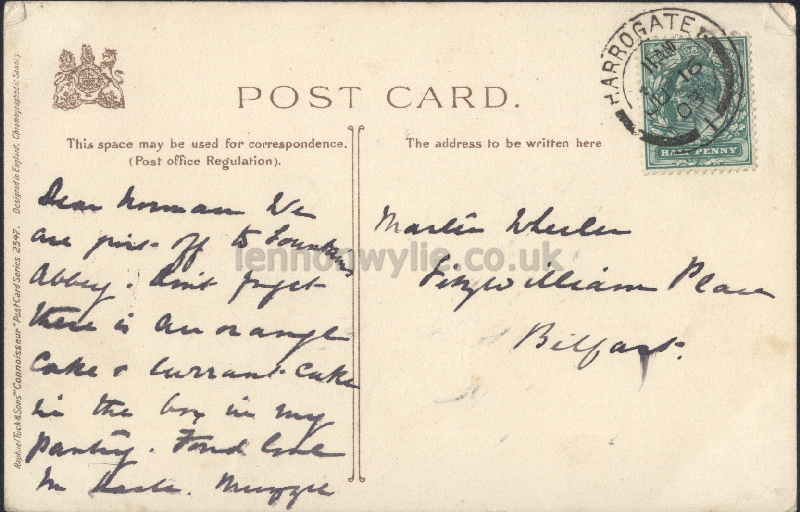 POST CARD.
HARROGATE
11 AM
16
03
HALF PENNY
This space may be used for correspondence.
(Post office Regulation).
The address to be written here
Dear Norman We
are just off to Fountains
Abbey. Don't forget
there is an orange
cake & currant cake
in the box in my
pantry. Fond love
In haste. Muzzie
Master Wheeler
Fitzwilliam Place
Belfast.
lennonwylie.co.uk
Raphael Tuck & Sons' "Connoisseur" Post Card Series 2547. Designed in England. Chromographed in Saxony